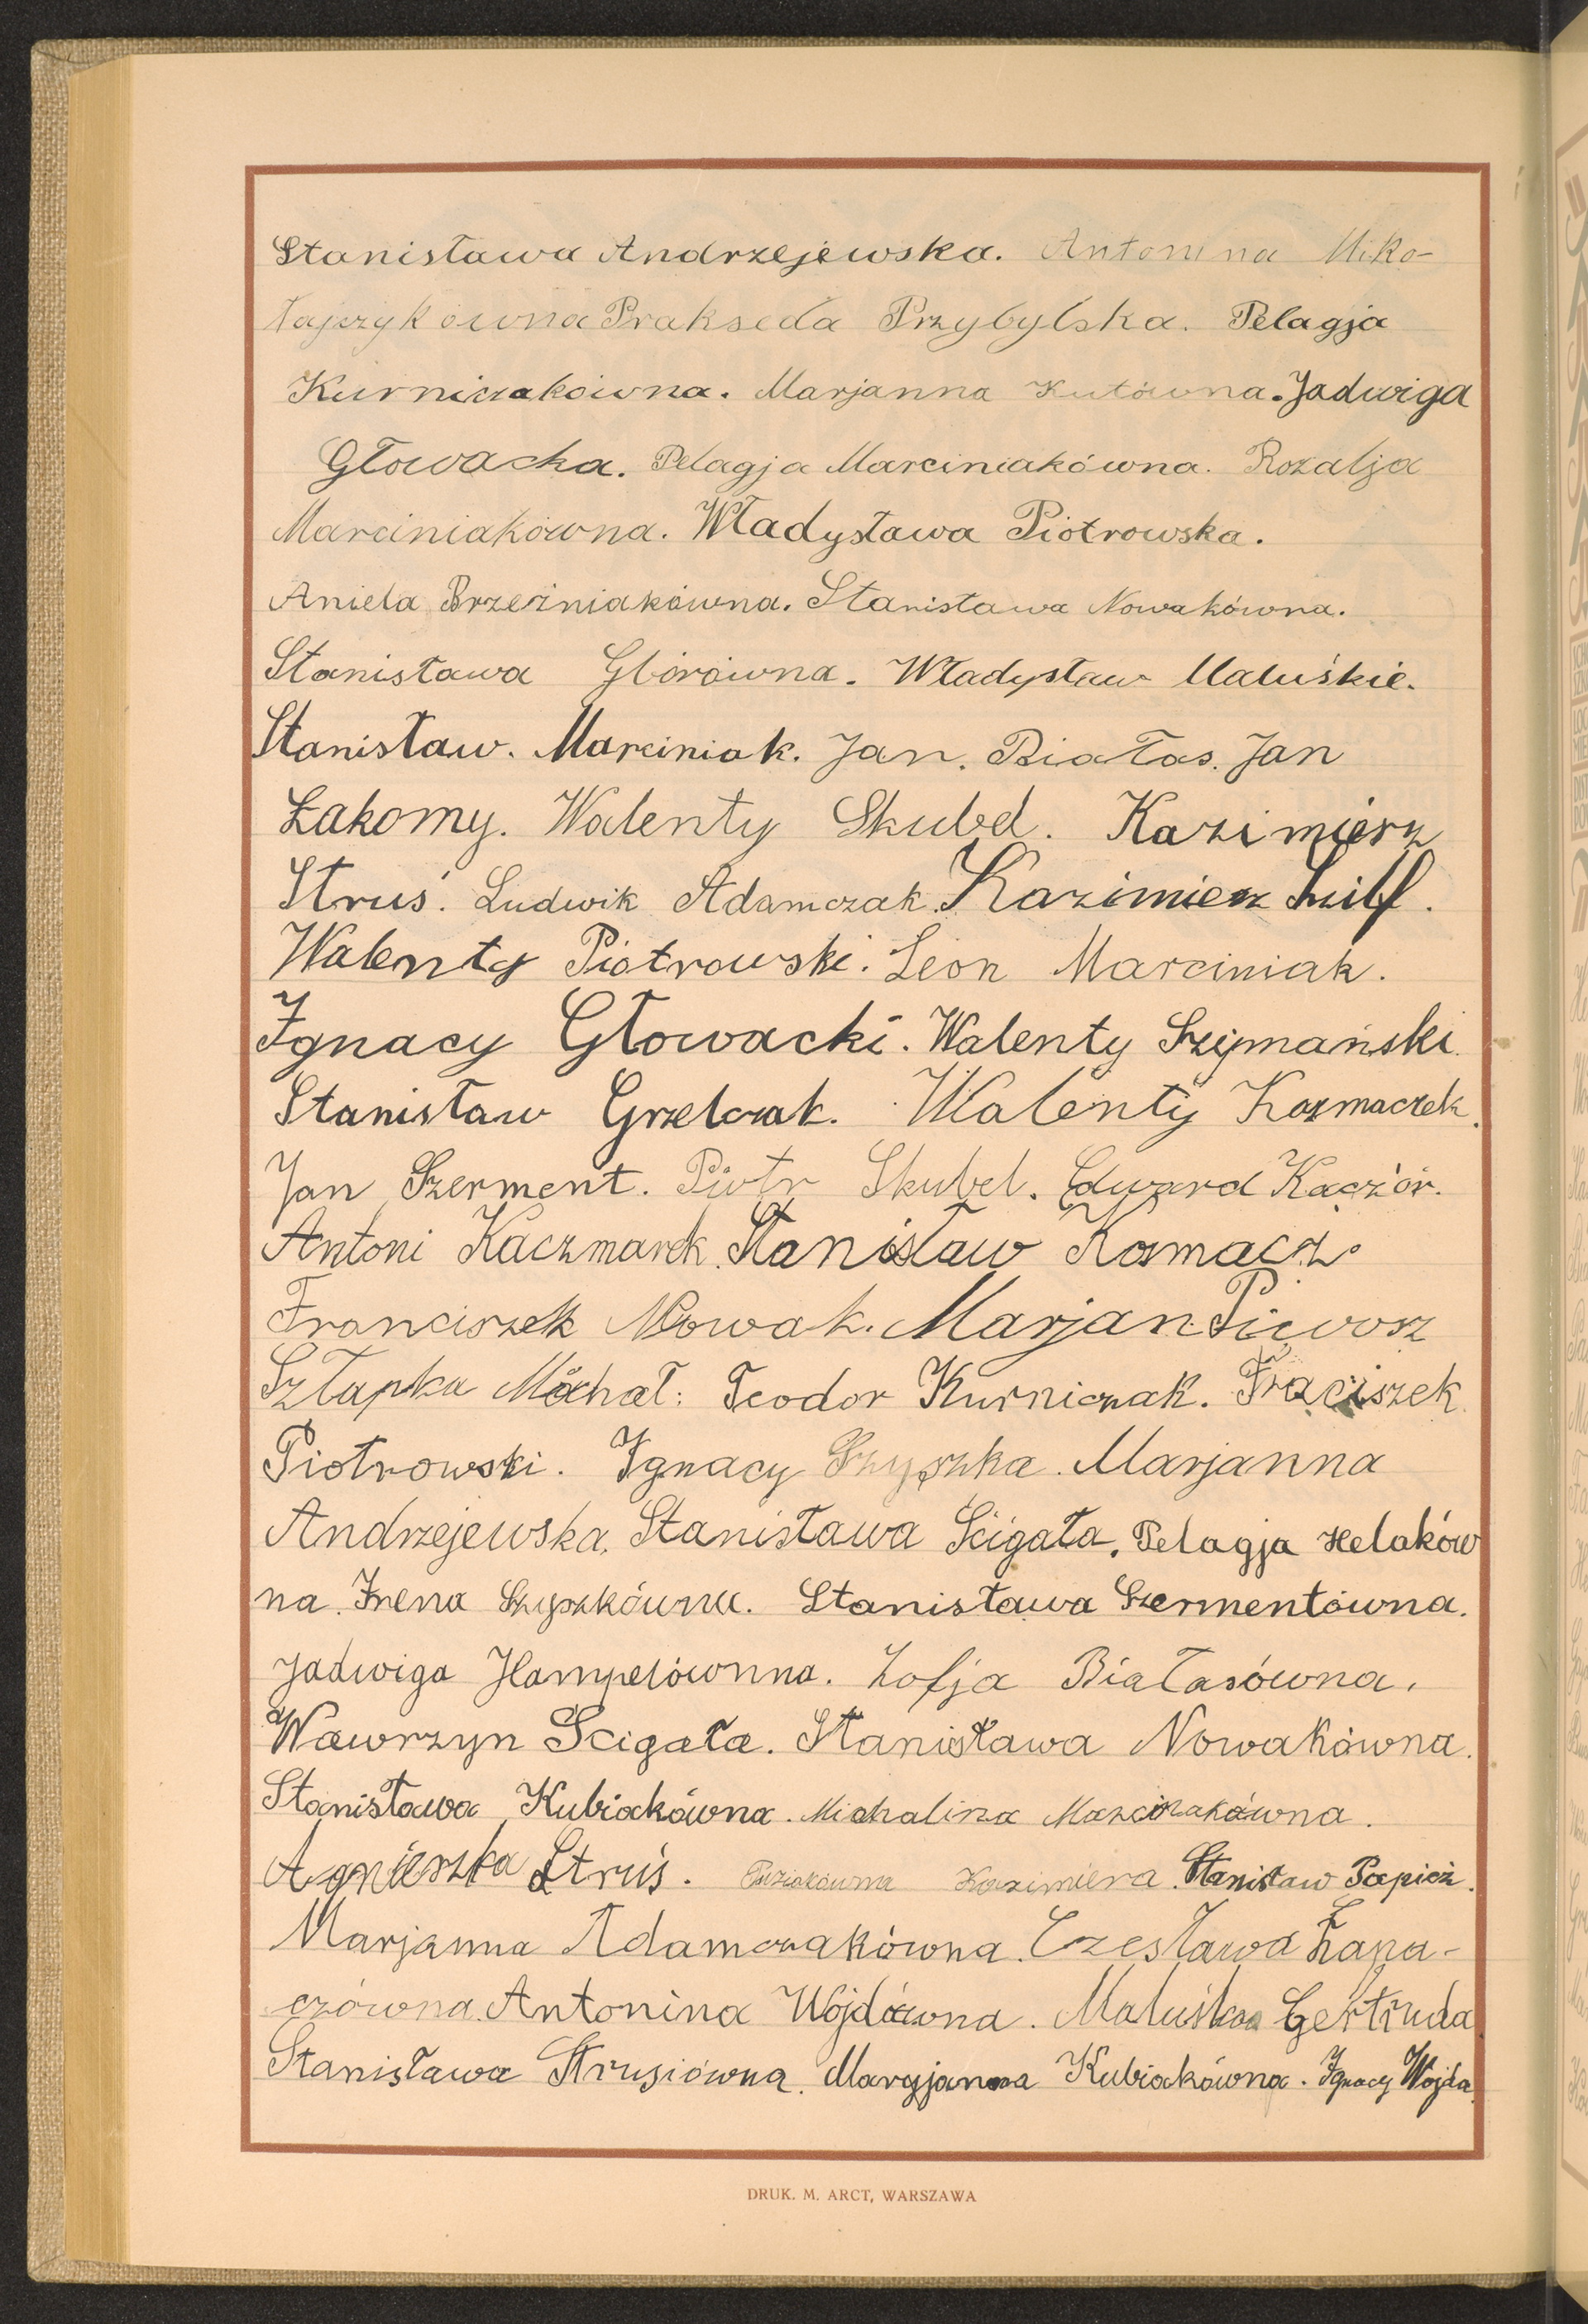 Stanisława Andrzejewska. Antonina Miko-
łajczykówna Prakseda Przybylska. Pelagja
Kurniczakówna. Marjanna Kutówna. Jadwiga
Głowacka. Pelagja Marciniakówna. Rozalja
Marciniakówna. Władysława Piotrowska.
Aniela Brzeźniakówna. Stanisława Nowakówna.
Stanisława Glórówna. Władysław Maluśkie.
Stanisław. Marciniak. Jan. Białas. Jan
Łakomy. Walenty Skubel. Kazimierz
Struś. Ludwik Adamczak. Kazimierz
Walenty Piotrowski. Leon Marciniak.
Ignacy Głowacki. Walenty Szymański.
Stanisław Grzelczak. Walenty Kozmaczek.
Jan Szerment. Piotr Skubel. Edward Kaczór.
Antoni Kaczmarek. Stanisław Kosmacz.
Franciszek Nowak. Marjan Piwosz
Sztapka Michał. Teodor Kurniczak. Frańciszek
Piotrowski. Ignacy Szyszka. Marjanna
Andrzejewska. Stanisława Ścigała. Pelagja Helaków
na. Irena Szyszkówna. Stanisława Szermentówna.
Jadwiga Hampelównna. Zofja Białasówna.
Wawrzyn Scigała. Stanisława Nowakówna.
Stanisława Kubiakówna. Michalina Marciniakówna.
Agnieszka Struś. Kazimiera. Stanisław Papież.
Marjanna Adamczakówna. Czesława Łapa-
czówna. Antonina Wójdówna. Maluśka Gertruda
Stanisława Strusiówna. Maryjanna Kubiakówna. Ignacy Wojda.
DRUK. M. ARCT, WARSZAWA